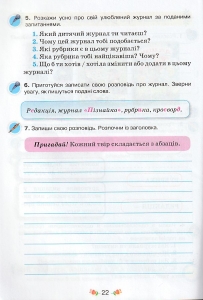 5. Розкажи усно про свій улюблений журнал за поданими
запитаннями.
1. Який дитячий журнал ти читаєш?
2. Чому цей журнал тобі подобається?
3. Які рубрики є в цьому журналі?
4. Яка рубрика тобі найцікавіша? Чому?
5. Що б ти хотів / хотіла змінити або додати в цьому
журналі?
6. Приготуйся записати свою розповідь про журнал. Зверни
увагу, як пишуться подані слова.
Редакція, журнал «Пізнайко», рубрика, кросворд.
7. Запиши свою розповідь. Розпочни із заголовка.
Пригадай! Кожний твір складається з абзаців.
22